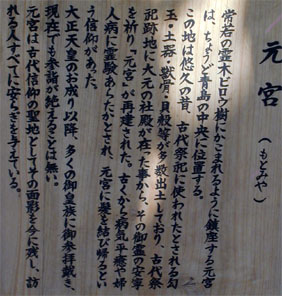 元宮（もとみや）
常若の霊木ビロウ樹にかこまれるように鎮座する元宮
は、ちょうど青島の中央に位置する。
この地は悠久の昔、古代祭祀に使われたとされる勾
玉・土器・獣骨・貝殻等が多数出土しており、古代祭
祀跡地に大元の社殿が在った事から、その御霊の安寧
を祈り「元宮」が再建された。古くから病気平癒や婦
人病に霊験あらたかとされ、元宮に髪を結び帰るとい
う信仰があった。
大正天皇のお成り以降、多くの御皇族に御参拝戴き、
現在でも参詣が絶えることは無い。
元宮は古代信仰の聖地としてその面影を今に残し、訪
れる人すべてに安らぎを与えている。